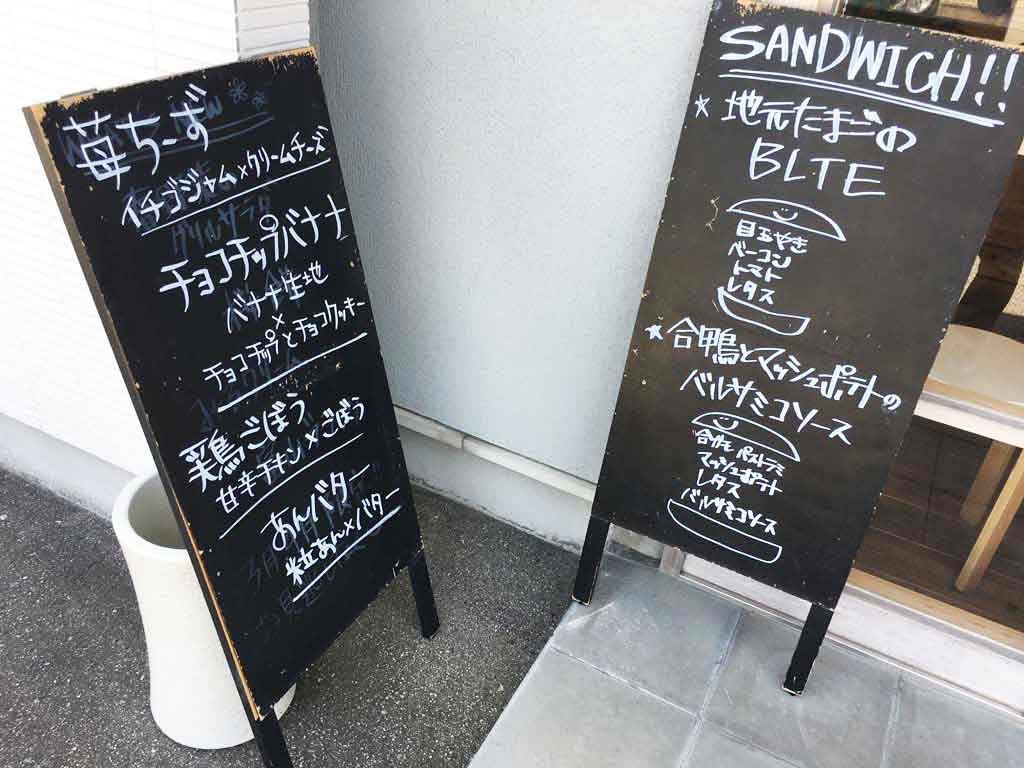 苺ちーず
イチゴジャム×クリームチーズ
チョコチップバナナ
バナナ生地
×
チョコチップとチョコクッキー
鶏ごぼう
甘辛チキン×ごぼう
あんバター
粒あん×バター
SANDWICH!!
★地元たまごの
BLTE
目玉やき
ベーコン
トマト
レタス
★合鴨とマッシュポテトの
バルサミコソース
合鴨 パストラミ
マッシュポテト
レタス
バルサミコソース